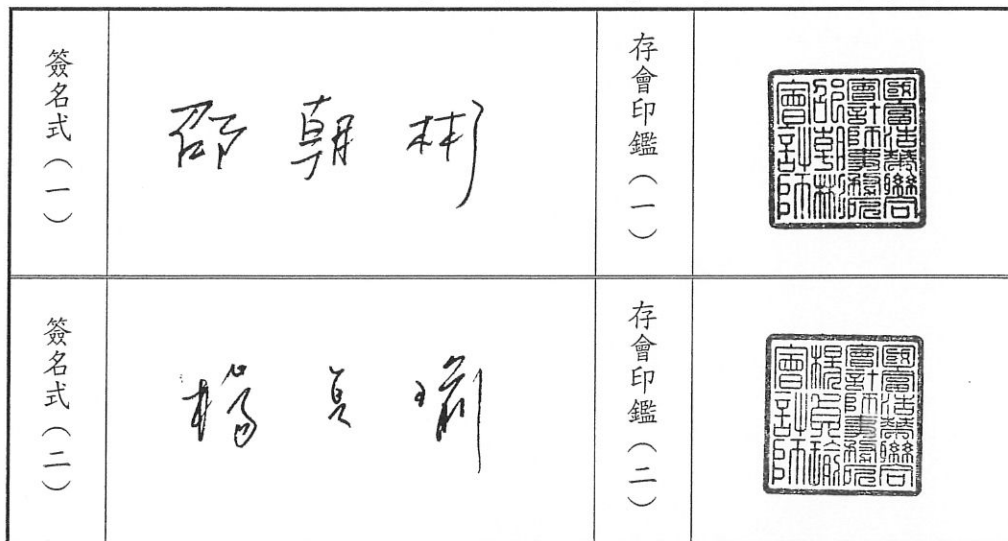 簽名式（一）
邵朝彬
存會印鑑（一）
國富浩華聯合
會計師事務所
邵朝彬
會計師
簽名式（二）
楊貞瑜
存會印鑑（二）
國富浩華聯合
會計師事務所
楊貞瑜
會計師